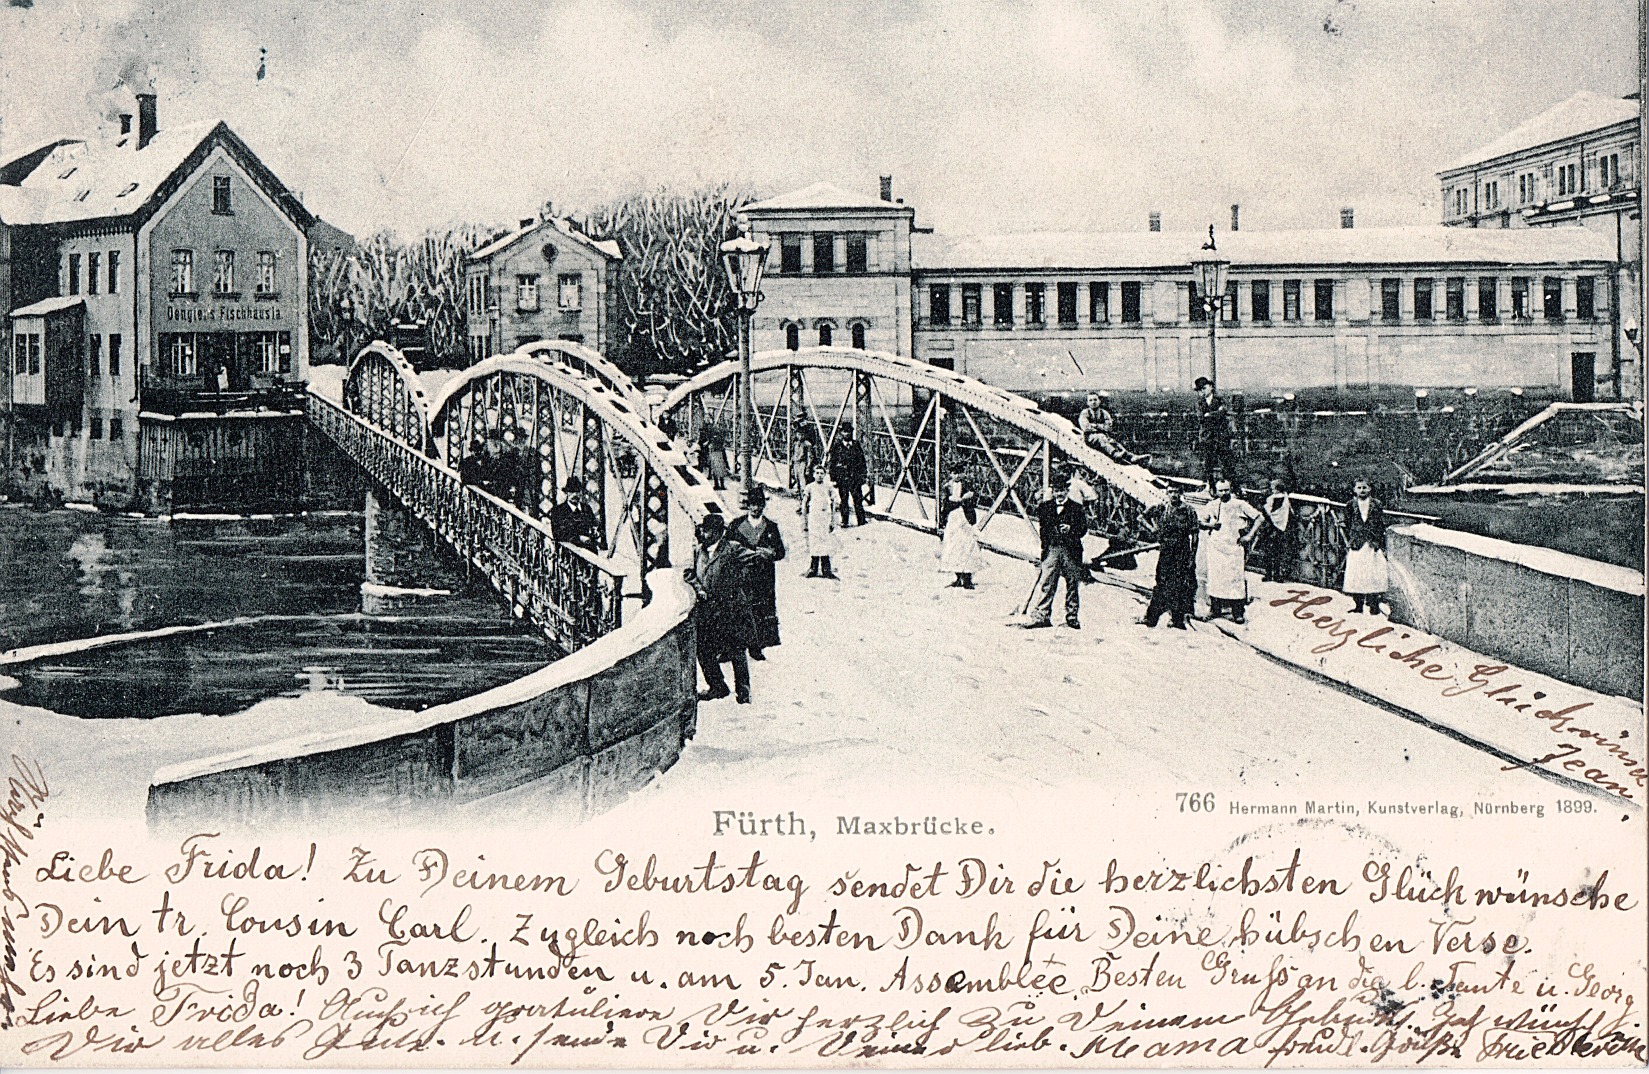 Dengler's Fischhäusla
Herzliche Glückwünsche
Jean.
766 Hermann Martin, Kunstverlag, Nürnberg 1899.
Fürth, Maxbrücke.
Liebe Frida! Zu Deinem Geburtstag sendet Dir die herzlichsten Glückwünsche
Dein tr. Cousin Carl. Zugleich noch besten Dank für Deine hübschen Verse.
Es sind jetzt noch 3 Tanzstunden u. am 5. Jan. Assemblée Besten Gruß an die l. Tante u. Georg
Liebe Frida! Auch ich gratuliere Dir herzlich zu Deinem
Dir alles Gute. u. sende Dir u. Deiner lieb. Mama freudl. Grüße